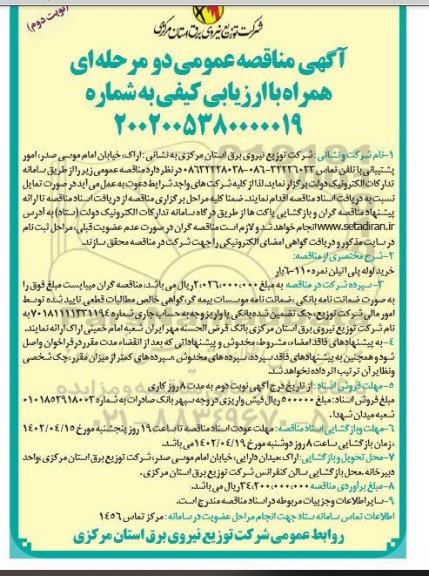 (نوبت دوم)
شرکت توزیع نیروی برق استان مرکزی
آگهی مناقصه عمومی دو مرحله ای
همراه با ارزیابی کیفی به شماره
۲۰۰۲۰۰۵۳۸۰۰۰۰۰۱۹
۱-نام شرکت و نشانی : شرکت توزیع نیروی برق استان مرکزی به نشانی : اراک، خیابان امام موسی صدر، امور
پشتیبانی با تلفن تماس ۳۲۲۲۶۰۲۳-۰۸۶ ۳۲۲۲۸۰۳۸-۰۸۶ در نظر دارد مناقصه عمومی زیر را از طریق سامانه
تدارکات الکترونیک دولت برگزار نماید، لذا از کلیه شرکت های واجد شرایط دعوت به عمل می آید در صورت تمایل
نسبت به دریافت اسناد مناقصه اقدام نمایند. ضمنا کلیه مراحل برگزاری مناقصه از دریافت اسناد مناقصه تا ارائه
پیشنهاد مناقصه گران و بازگشایی پاکت ها از طریق درگاه سامانه تدارکات الکترونیک دولت (ستاد) به آدرس
www.setadiran.ir انجام خواهد شد و لازم است مناقصه گران در صورت عدم عضویت قبلی، مراحل ثبت نام
در سایت مذکور و دریافت گواهی امضای الکترونیکی را جهت شرکت در مناقصه محقق سازند.
۲-شرح مختصری از مناقصه:
خرید لوله پلی اتیلن نمره ۱۱۰-۶بار
۳-سپرده شرکت در مناقصه به مبلغ ۲,۰۲۶,۰۰۰,۰۰۰ ریال می باشد، مناقصه گران میبایست مبلغ فوق را
به صورت ضمانت نامه بانکی ، ضمانت نامه موسسات بیمه گر، گواهی خالص مطالبات قطعی تایید شده توسط
امور مالی شرکت توزیع، چک تضمین شده بانکی یا واریز وجه به حساب جاری شماره ۷۰۱۸۱۱۱۱۳۳۱۱۹۴ به
نام شرکت توزیع نیروی برق استان مرکزی بانک قرض الحسنه مهر ایران شعبه امام خمینی اراک ارائه نمایند.
۴- به پیشنهادهای فاقد امضاء، مشروط، مخدوش و پیشنهاداتی که بعد از انقضاء مدت مقرر در فراخوان واصل
شود و همچنین به پیشنهادهای فاقد سپرده، سپرده های مخدوش، سپرده های کمتر از میزان مقرر، چک شخصی
ونظایر آن ترتیب اثر داده نخواهد شد.
۵- مهلت فروش اسناد: از تاریخ درج آگهی نوبت دوم به مدت ۸ روز کاری
مبلغ فروش اسناد: مبلغ ۵۰۰۰۰۰ ریال فیش واریزی در وجه سپهر بانک صادرات به شماره ۰۱۰۱۸۵۳۹۱۸۰۰۳
شعبه میدان شهدا.
۶-مهلت وبازگشایی اسناد مناقصه : مهلت عودت اسناد مناقصه تا ساعت ۱۹ روز پنجشنبه مورخ ۱۴۰۲/۰۴/۱۵
،زمان بازگشایی ساعت ۸ روز دوشنبه مورخ ۱۴۰۲/۰۴/۱۹ می باشد.
۷-محل تحویل وبازگشایی : اراک، میدان دارایی، خیابان امام موسی صدر، شرکت توزیع برق استان مرکزی، واحد
دبیرخانه ،محل بازگشایی سالن کنفرانس شرکت توزیع برق استان مرکزی.
۸-مبلغ برآوردی مناقصه ۳۴,۲۰۰,۰۰۰,۰۰۰ ریال می باشد.
۹-سایر اطلاعات وجزییات مربوطه در اسناد مناقصه مندرج است.
اطلاعات تماس سامانه ستاد جهت انجام مراحل عضویت در سامانه : مرکز تماس ۱۴۵۶
روابط عمومی شرکت توزیع نیروی برق استان مرکزی